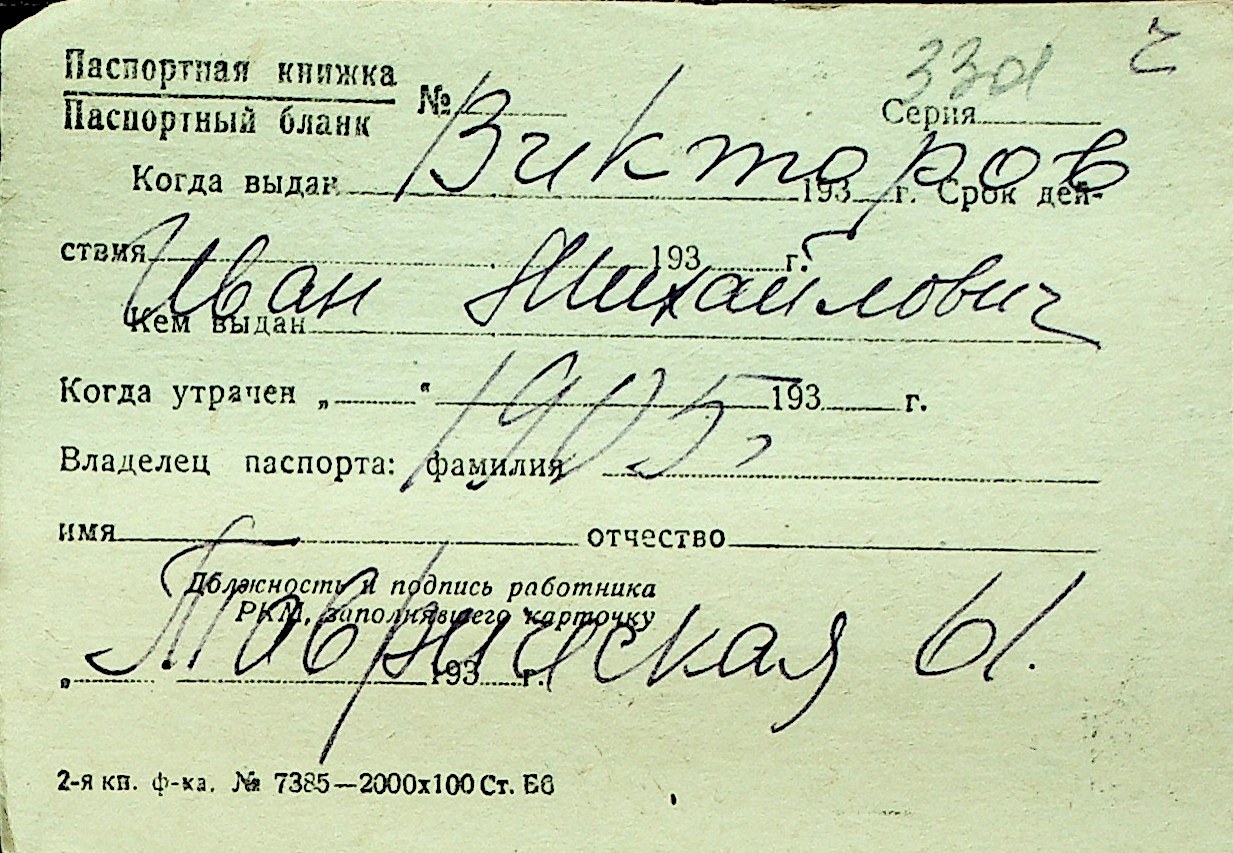 Паспортная книжка
Паспортный бланк
№
Серия
ч
Викторов
Когда выдан 193 г. Срок дей-
ствия 193 г.
Иван Михайлович
Кем выдан
Когда утрачен „ “ 193 г.
1905,
Владелец паспорта: фамилия
имя отчество
Должность и подпись работника
РКМ, заполнявшего карточку
Таврическая 61.
„ 193 г.
2-я кн. ф-ка. № 7385—2000х100 Ст. Еб